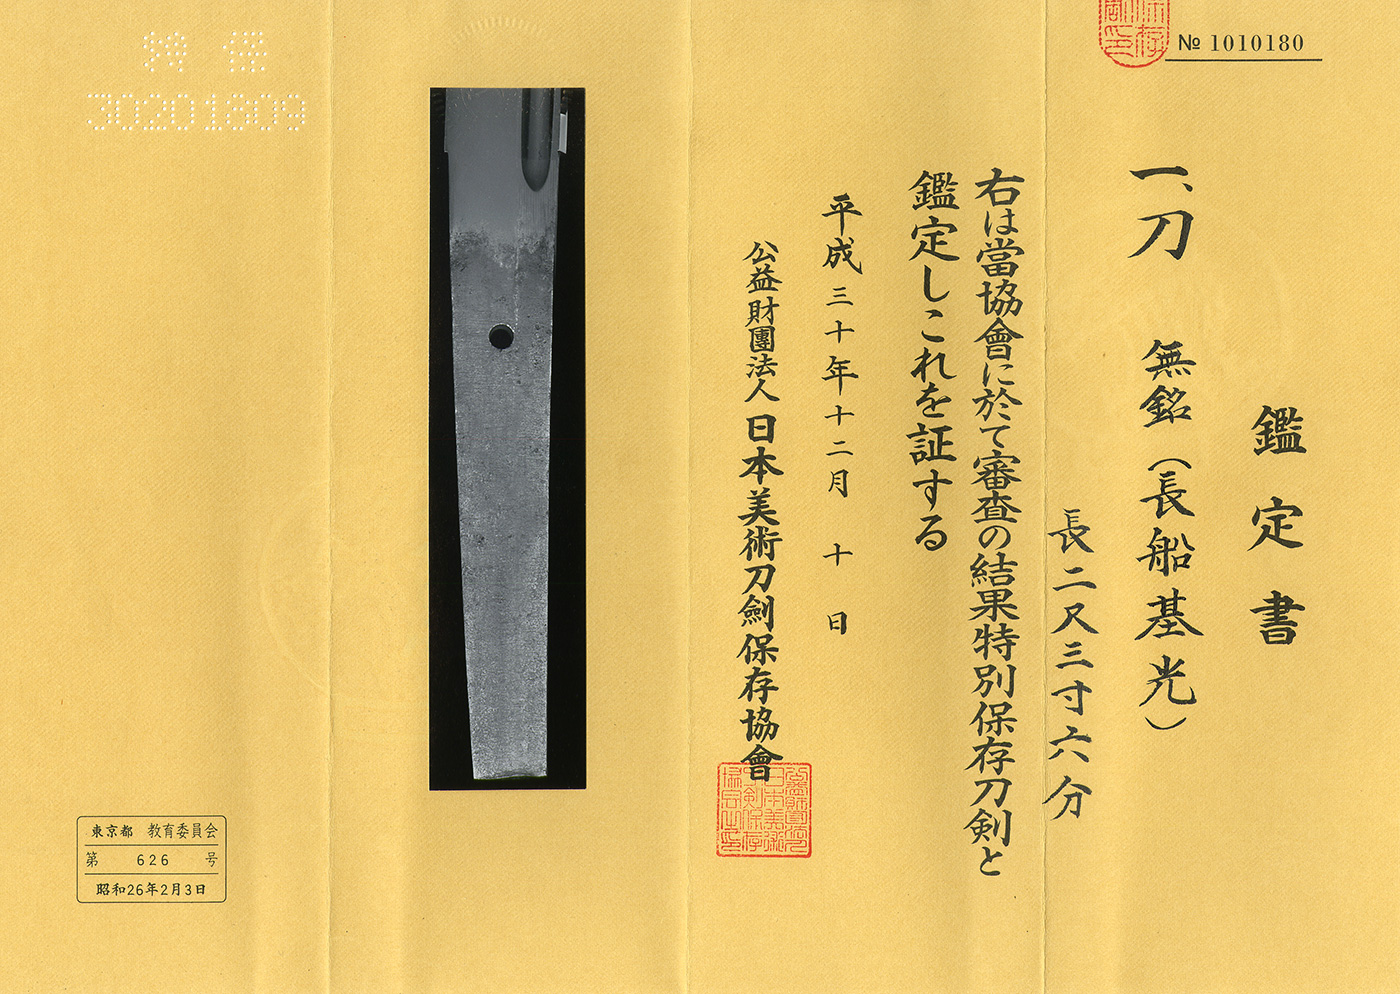 № 1010180
鑑定書
一、刀 無銘（長船基光）
長二尺三寸六分
右は當協會に於て審査の結果特別保存刀剣と
鑑定しこれを証する
平成三十年十二月 十 日
公益財團法人 日本美術刀劍保存協會
特 保
30201809
東京都 教育委員会
第 626 号
昭和26年2月3日